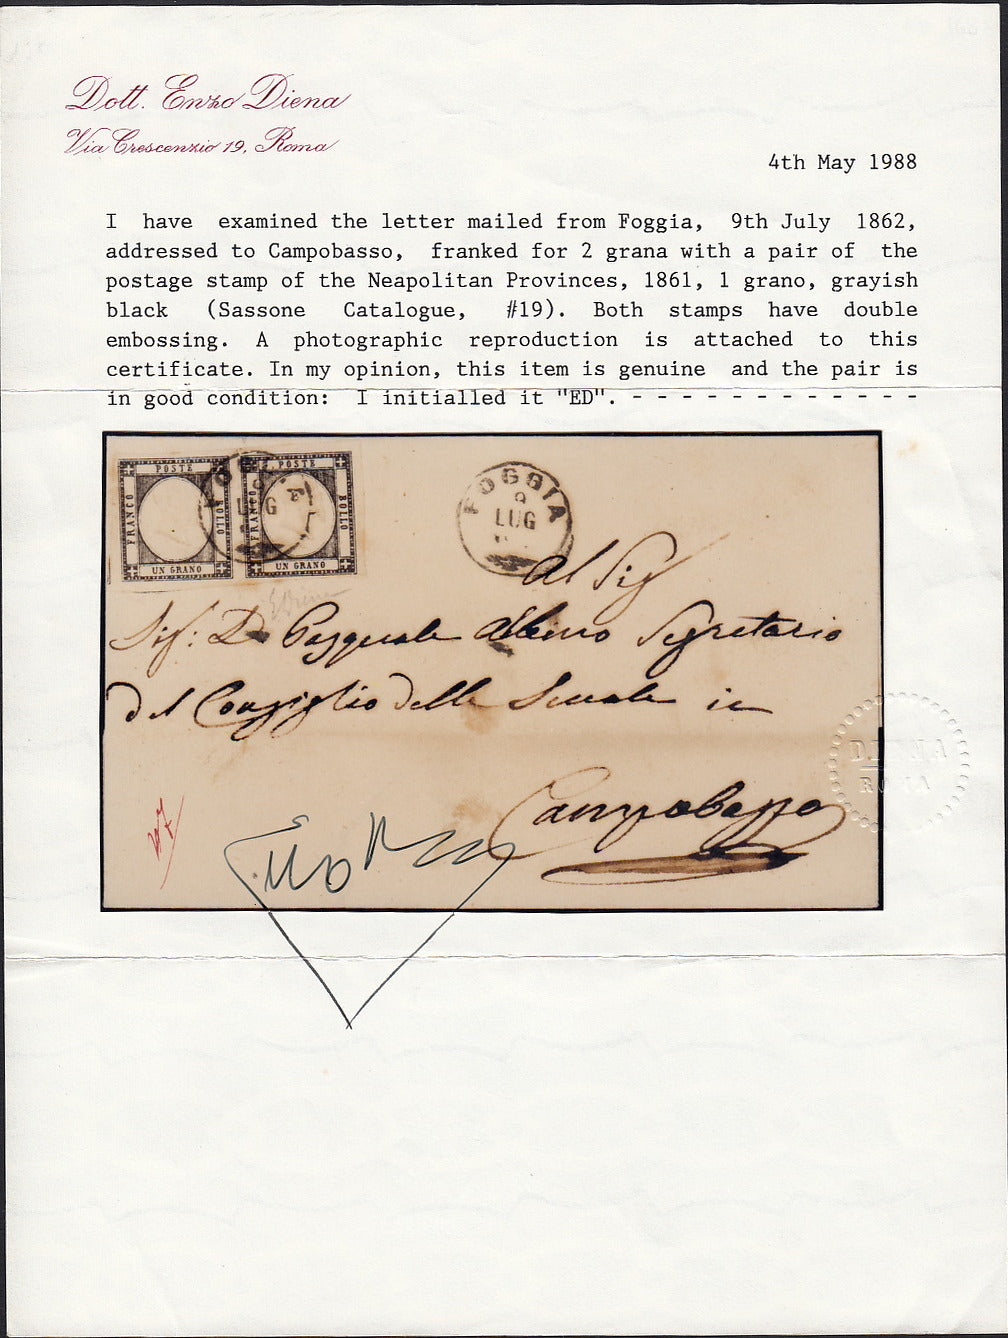 Dott. Enzo Diena
Via Crescenzio 19, Roma
4th May 1988
I have examined the letter mailed from Foggia, 9th July 1862,
addressed to Campobasso, franked for 2 grana with a pair of the
postage stamp of the Neapolitan Provinces, 1861, 1 grano, grayish
black (Sassone Catalogue, #19). Both stamps have double
embossing. A photographic reproduction is attached to this
certificate. In my opinion, this item is genuine and the pair is
in good condition: I initialled it "ED". - - - - - - - - - - - -
POSTE
FRANCO
BOLLO
UN GRANO
POSTE
FRANCO
BOLLO
UN GRANO
FOGGIA
LUG
FOGGIA
9
LUG
Al Sig
Sig: D. Pasquale Albino Segretario
del Consiglio delle Scuole in
Campobasso
DIENA
ROMA